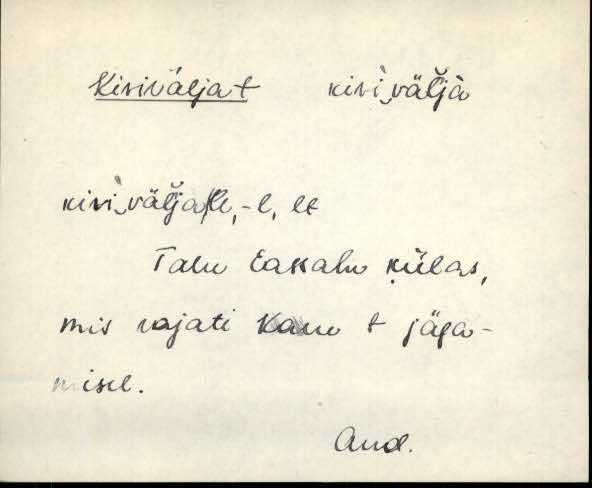 Kiriväljat kiri̬väĺjà
kiri̬väĺja/le, -l, lt
Talu Eassalu külas,
mis rajati Kanu t jaga-
misel.
And.